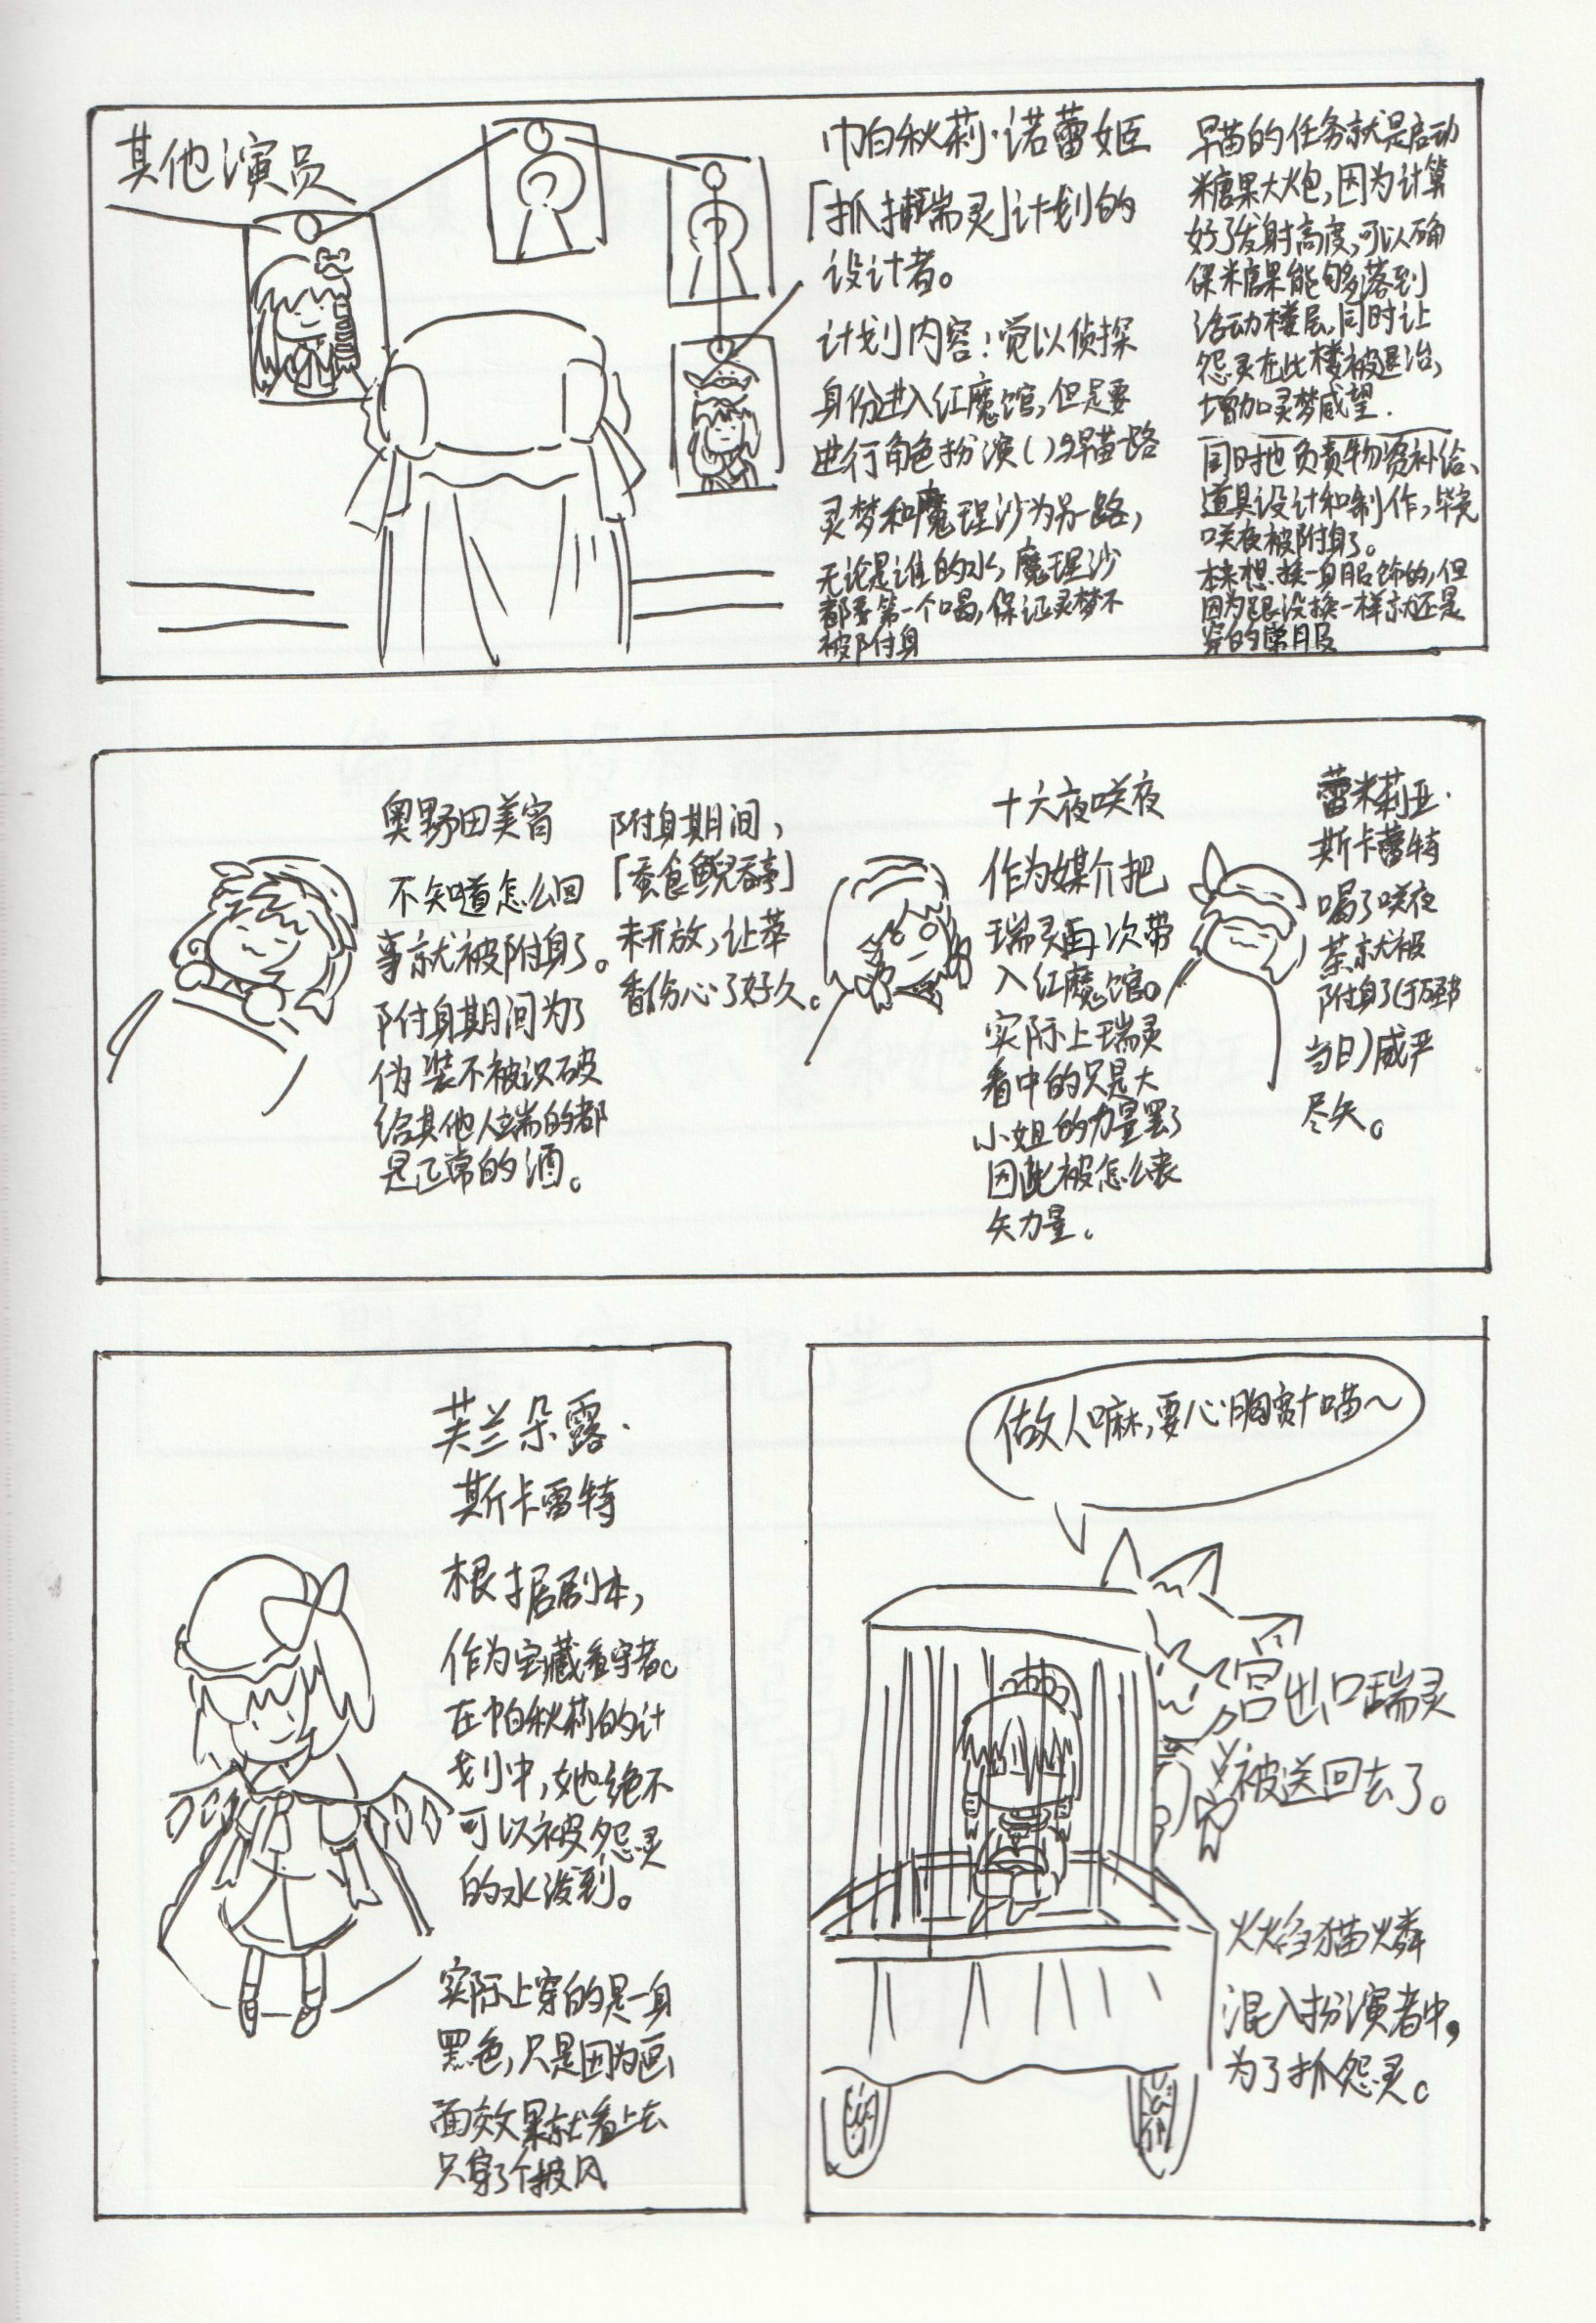 其他演员
帕秋莉·诺蕾姬
「抓捕瑞灵」计划的
设计者。
计划内容:觉以侦探
身份进入红魔馆,但是要
进行角色扮演()与早苗一路
灵梦和魔理沙为另一路,
无论是谁的水,魔理沙
都要第一个喝,保证灵梦不
被附身
早苗的任务就是启动
糖果大炮,因为计算
好了发射高度,可以确
保糖果能够落到
活动楼层,同时让
怨灵在此楼被退治,
增加灵梦威望.
同时也负责物资补给、
道具设计和制作,毕竟
咲夜被附身了。
本来想换一身服饰的,但
因为跟没换一样就还是
穿的常服
奥野田美宵
不知道怎么回
事就被附身了。
附身期间为了
伪装不被识破
给其他人端的都
是正常的酒。
附身期间,
「蚕食鲵吞亭」
未开放,让萃
香伤心了好久。
十六夜咲夜
作为媒介把
瑞灵再次带
入红魔馆。
实际上瑞灵
看中的只是大
小姐的力量罢了
因此被怎么丧
失力量。
蕾米莉亚·
斯卡蕾特
喝了咲夜
茶就被
附身了(于万圣节
当日)威严
尽失。
芙兰朵露·
斯卡雷特
根据剧本,
作为宝藏看守者。
在帕秋莉的计
划中,她绝不
可以被怨灵
的水泼到。
实际上穿的是一身
黑色,只是因为画
面效果就看上去
只穿了个披风
做人嘛,要心胸宽广喵~
宫出口瑞灵
被送回去了。
火焰猫燐
混入扮演者中,
为了抓怨灵。